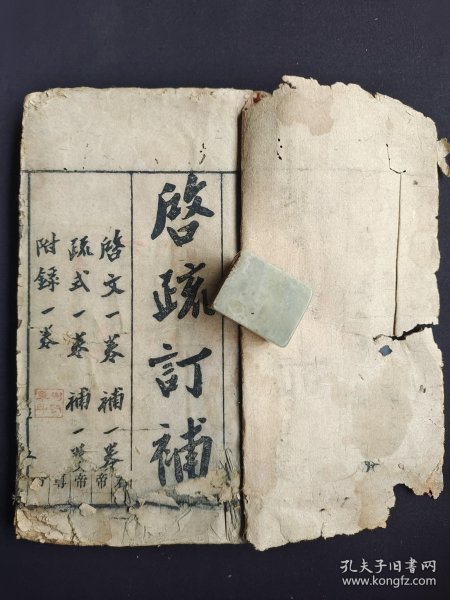 啓疏訂補
啓文一卷 補一卷
疏式一卷 補一卷
附錄一卷
孔夫子旧书网
www.kongfz.com